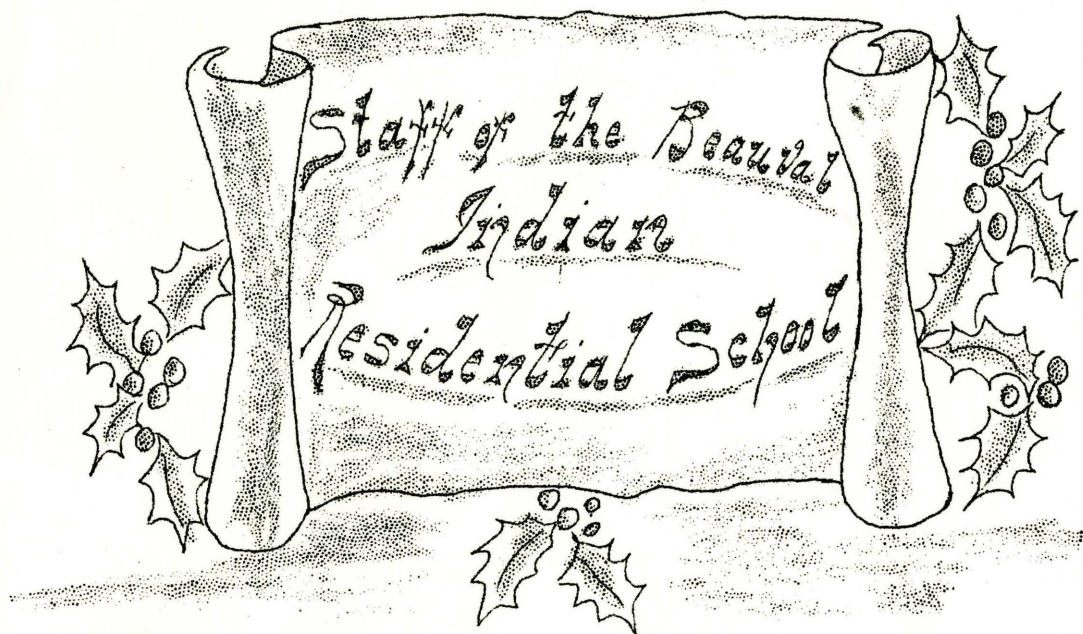 Staff of the Beauval
Indian
Residential School